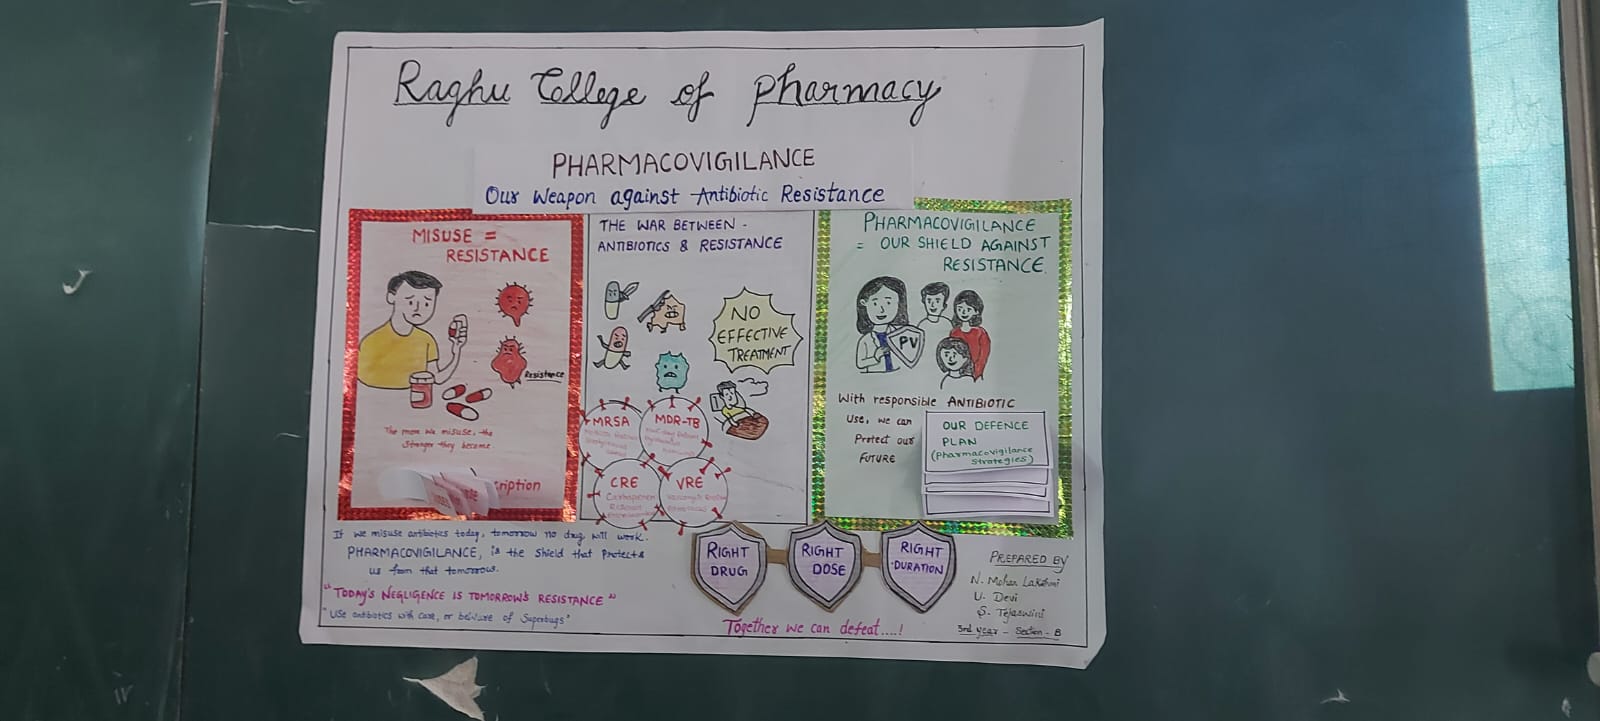 Raghu College of pharmacy
PHARMACOVIGILANCE
Our Weapon against Antibiotic Resistance
MISUSE =
RESISTANCE
Resistance
The more we misuse, the
stronger they become
THE WAR BETWEEN -
ANTIBIOTICS & RESISTANCE
NO
EFFECTIVE
TREATMENT
MRSA
MDR-TB
CRE
VRE
PHARMACOVIGILANCE
= OUR SHIELD AGAINST
RESISTANCE.
PV
With responsible ANTIBIOTIC
Use, we can
Protect our
FUTURE
OUR DEFENCE
PLAN
(Pharmacovigilance
Strategies)
If we misuse antibiotics today, tomorrow no drug will work.
PHARMACOVIGILANCE, is the shield that protects
us from that tomorrow.
"TODAY'S NEGLIGENCE IS TOMORROW'S RESISTANCE"
"Use antibiotics with care, or beware of Superbugs"
RIGHT
DRUG
RIGHT
DOSE
RIGHT
DURATION
Together we can defeat....!
PREPARED BY
N. Mohan Lakshmi
U. Devi
S. Tejaswini
3rd year - Section - B